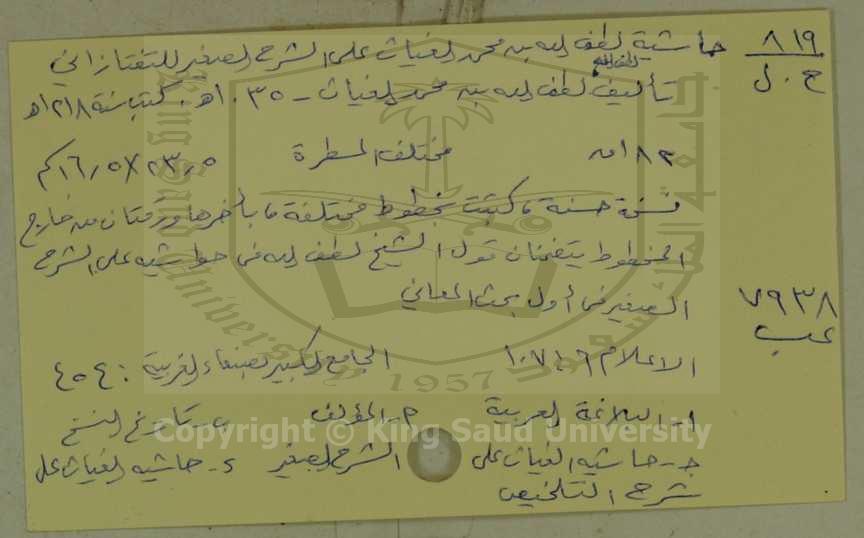 ٨١٩
ح . ل
حاشية لطف الله بن محمد الغياث على الشرح الصغير للتفتازاني
تأليف لطف الله بن محمد الغياث - ١٠٣٥هـ . كتبت سنة ١٢١٨هـ
١٨٢ق مختلف المسطرة ٢٣٫٥×١٦٫٥كم
نسخة حسنة ، كتبت بخطوط مختلفة ، بأخرها ورقتان من خارج
المخطوط يتضمنان قول الشيخ لطف الله في حواشيه على الشرح
الصغير في أول بحث المعاني
٧٩٣٨
عب
الاعلام ٦ : ١٠٧ الجامع الكبير بصنعاء الغربية : ٤٥٤
١- البلاغة العربية أ- المؤلف ب- تاريخ النسخ
جـ- حاشية الغياث على الشرح الصغير د- حاشية الغياث على
شرح التلخيص
Copyright © King Saud University
1957